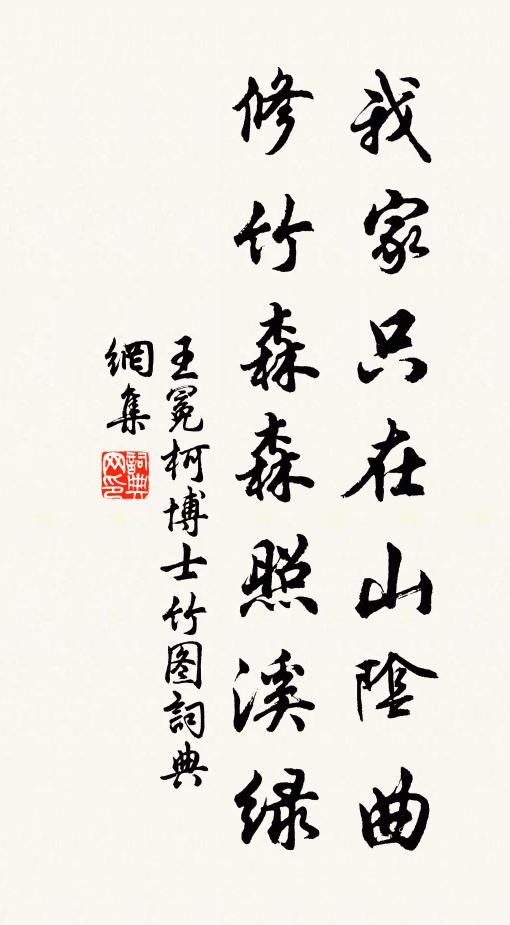 我家只在山陰曲
修竹森森照溪绿
王冕柯博士竹图詞典
網集
詞典網印